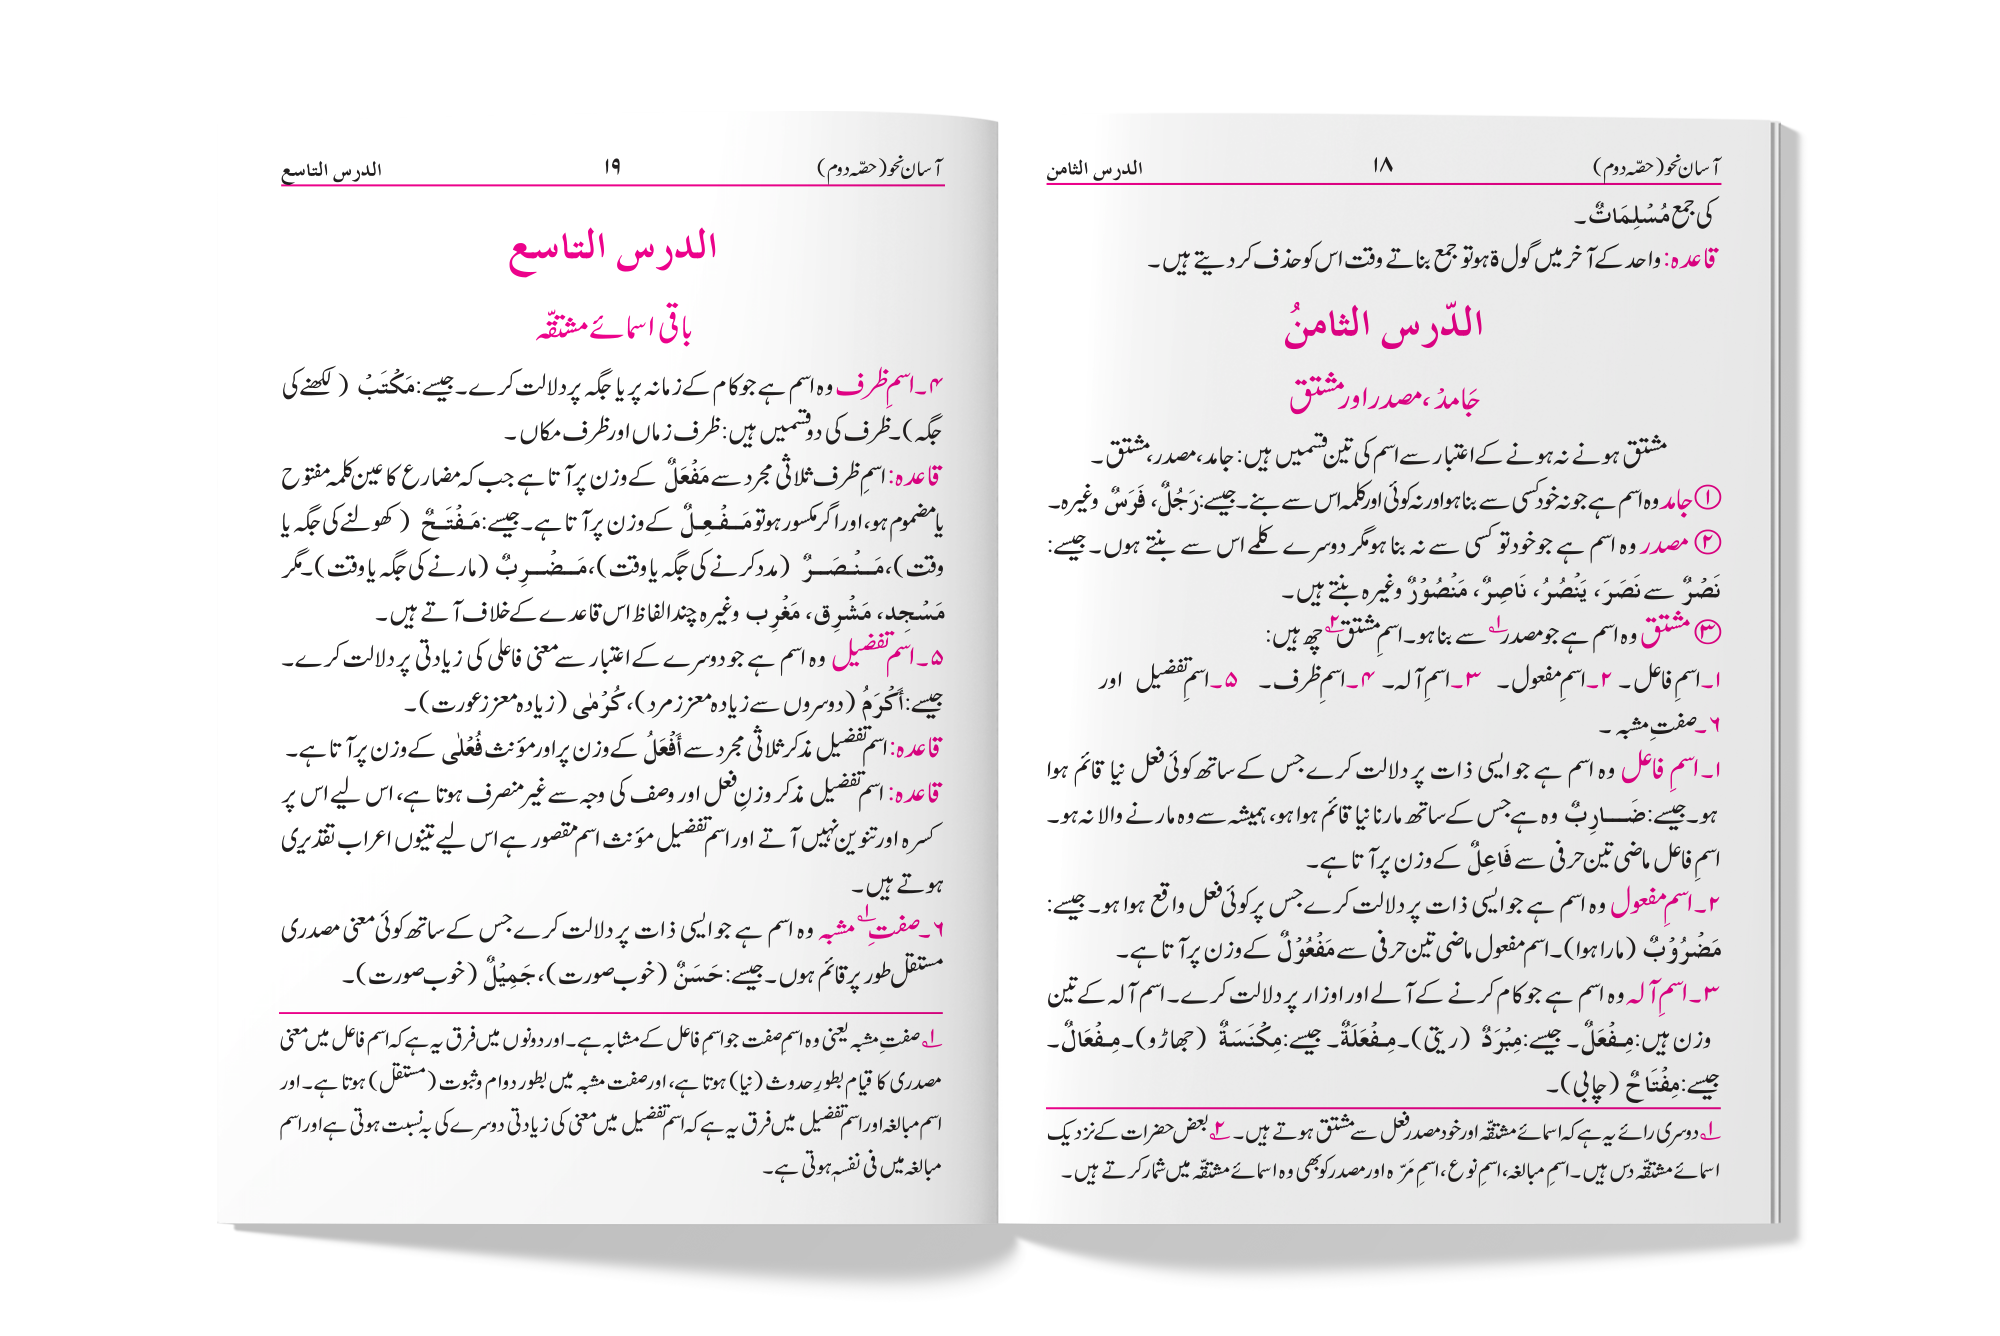 آسان نحو (حصّہ دوم) ۱۸ الدرس الثامن
کی جمع مُسْلِمَاتٌ۔
قاعدہ: واحد کے آخر میں گول ۃ ہو تو جمع بناتے وقت اس کو حذف کر دیتے ہیں۔
الدّرس الثامنُ
جَامدْ، مصدر اور مشتق
مشتق ہونے نہ ہونے کے اعتبار سے اسم کی تین قسمیں ہیں: جامد، مصدر، مشتق۔
① جامد وہ اسم ہے جو نہ خود کسی سے بنا ہو اور نہ کوئی اور کلمہ اس سے بنے۔ جیسے: رَجُلٌ، فَرَسٌ وغیرہ۔
② مصدر وہ اسم ہے جو خود تو کسی سے نہ بنا ہو مگر دوسرے کلمے اس سے بنتے ہوں۔ جیسے:
نَصْرٌ سے نَصَرَ، يَنْصُرُ، نَاصِرٌ، مَنْصُوْرٌ وغیرہ بنتے ہیں۔
③ مشتق وہ اسم ہے جو مصدر۱؎ سے بنا ہو۔ اسمِ مشتق۲؎ چھ ہیں:
۱۔ اسمِ فاعل۔ ۲۔ اسمِ مفعول۔ ۳۔ اسمِ آلہ۔ ۴۔ اسمِ ظرف۔ ۵۔ اسمِ تفضیل اور
۶۔ صفتِ مشبہ۔
۱۔ اسمِ فاعل وہ اسم ہے جو ایسی ذات پر دلالت کرے جس کے ساتھ کوئی فعل نیا قائم ہوا
ہو۔ جیسے: ضَــارِبٌ وہ ہے جس کے ساتھ مارنا نیا قائم ہوا ہو، ہمیشہ سے وہ مارنے والا نہ ہو۔
اسمِ فاعل ماضی تین حرفی سے فَاعِلٌ کے وزن پر آتا ہے۔
۲۔ اسمِ مفعول وہ اسم ہے جو ایسی ذات پر دلالت کرے جس پر کوئی فعل واقع ہوا ہو۔ جیسے:
مَضْرُوْبٌ (مارا ہوا)۔ اسم مفعول ماضی تین حرفی سے مَفْعُوْلٌ کے وزن پر آتا ہے۔
۳۔ اسمِ آلہ وہ اسم ہے جو کام کرنے کے آلے اور اوزار پر دلالت کرے۔ اسم آلہ کے تین
وزن ہیں: مِـفْعَلٌ۔ جیسے: مِبْرَدٌ (ریتی)۔ مِـفْعَلَةٌ۔ جیسے: مِكْنَسَةٌ (جھاڑو)۔ مِـفْعَالٌ۔
جیسے: مِفْتَاحٌ (چابی)۔
۱؎ دوسری رائے یہ ہے کہ اسمائے مشتقّہ اور خود مصدر فعل سے مشتق ہوتے ہیں۔ ۲؎ بعض حضرات کے نزدیک
اسمائے مشتقّہ دس ہیں۔ اسمِ مبالغہ، اسمِ نوع، اسمِ مَرّہ اور مصدر کو بھی وہ اسمائے مشتقّہ میں شمار کرتے ہیں۔
آسان نحو (حصّہ دوم) ۱۹ الدرس التاسع
الدرس التاسع
باقی اسمائے مشتقّہ
۴۔ اسمِ ظرف وہ اسم ہے جو کام کے زمانہ پر یا جگہ پر دلالت کرے۔ جیسے: مَكْتَبْ (لکھنے کی
جگہ)۔ ظرف کی دو قسمیں ہیں: ظرف زماں اور ظرف مکاں۔
قاعدہ: اسمِ ظرف ثلاثی مجرد سے مَفْعَلٌ کے وزن پر آتا ہے جب کہ مضارع کا عین کلمہ مفتوح
یا مضموم ہو، اور اگر مکسور ہو تو مَــفْـعِـلٌ کے وزن پر آتا ہے۔ جیسے: مَـفْـتَـحٌ (کھولنے کی جگہ یا
وقت)، مَــنْـصَــرٌ (مدد کرنے کی جگہ یا وقت)، مَــضْـــرِبٌ (مارنے کی جگہ یا وقت)۔ مگر
مَسْجِد، مَشْرِق، مَغْرِب وغیرہ چند الفاظ اس قاعدے کے خلاف آتے ہیں۔
۵۔ اسم تفضیل وہ اسم ہے جو دوسرے کے اعتبار سے معنی فاعلی کی زیادتی پر دلالت کرے۔
جیسے: أَكْرَمُ (دوسروں سے زیادہ معزز مرد)، كُرْمٰی (زیادہ معزز عورت)۔
قاعدہ: اسم تفضیل مذکر ثلاثی مجرد سے أَفْعَلُ کے وزن پر اور مؤنث فُعْلٰی کے وزن پر آتا ہے۔
قاعدہ: اسم تفضیل مذکر وزنِ فعل اور وصف کی وجہ سے غیر منصرف ہوتا ہے، اس لیے اس پر
کسرہ اور تنوین نہیں آتے اور اسم تفضیل مؤنث اسم مقصور ہے اس لیے تینوں اعراب تقدیری
ہوتے ہیں۔
۶۔ صفتِ۱؎ مشبہ وہ اسم ہے جو ایسی ذات پر دلالت کرے جس کے ساتھ کوئی معنی مصدری
مستقل طور پر قائم ہوں۔ جیسے: حَسَنٌ (خوب صورت)، جَمِيْلٌ (خوب صورت)۔
۱؎ صفتِ مشبہ یعنی وہ اسمِ صفت جو اسمِ فاعل کے مشابہ ہے۔ اور دونوں میں فرق یہ ہے کہ اسم فاعل میں معنی
مصدری کا قیام بطورِ حدوث (نیا) ہوتا ہے، اور صفت مشبہ میں بطور دوام وثبوت (مستقل) ہوتا ہے۔ اور
اسم مبالغہ اور اسم تفضیل میں فرق یہ ہے کہ اسم تفضیل میں معنی کی زیادتی دوسرے کی بہ نسبت ہوتی ہے اور اسم
مبالغہ میں فی نفسہٖ ہوتی ہے۔